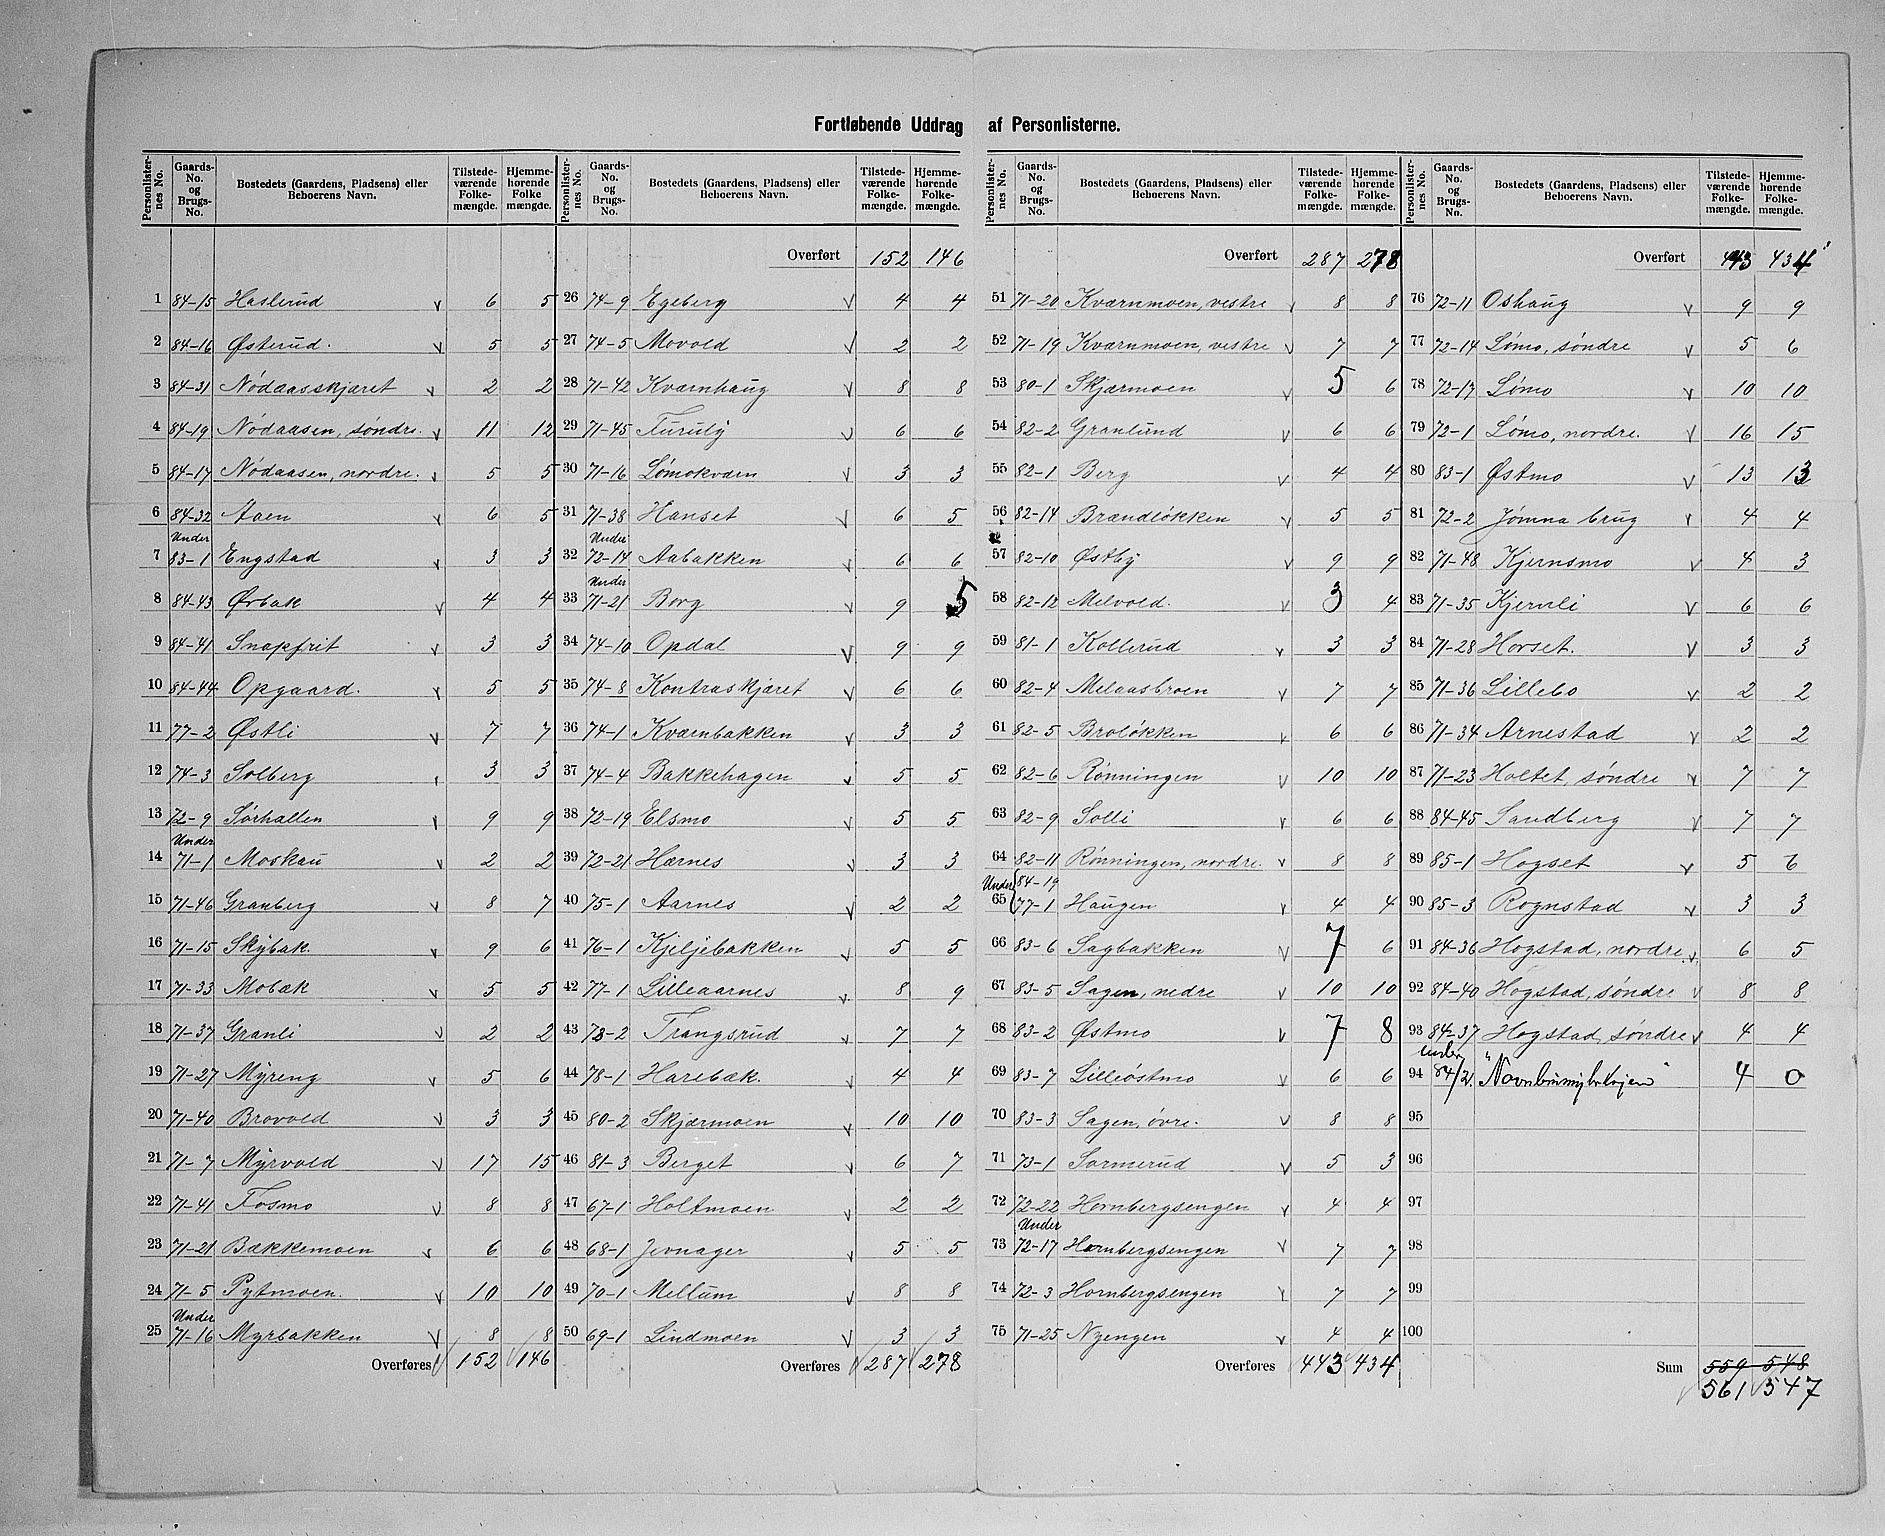 Fortløbende Uddrag af Personlisterne.
Personlisternes No. Gaards-No. og Brugs-No. Bostedets (Gaardens, Pladsens) eller Beboerens Navn. Tilstedeværende Folkemængde. Hjemmehørende Folkemængde.
1 84-15 Haslerud v 6 5
2 84-16 Østerud. v 5 5
3 84-31 Nödaasskjæret v 2 2
4 84-19 Nödaasen, søndre. v 11 12
5 84-17 Nödaasen, nordre. v 5 5
6 84-32 Aaen v 6 5
Under
7 83-1 Engstad v 3 3
8 84-43 Ørbak v 4 4
9 84-41 Snapfrit v 3 3
10 84-44 Opgaard. v 5 5
11 77-2 Østli v 7 7
12 74-3 Solberg 3 3
13 72-9 Sørhallen v 9 9
Under
14 71-1 Moskau v 2 2
15 71-46 Granberg v 8 7
16 71-15 Skÿbak. v 9 6
17 71-33 Mobæk v 5 5
18 71-37 Granli v 2 2
19 71-27 Mÿreng v 5 6
20 71-40 Brovold v 3 3
21 71-7 Mÿrvold v 17 15
22 71-41 Fosmo v 8 8
23 71-21 Bækkemoen v 6 6
24 71-5 Pytmoen. v 10 10
Under
25 71-16 Myrbakken v 8 8
Overføres 152 146
Personlisternes No. Gaards-No. og Brugs-No. Bostedets (Gaardens, Pladsens) eller Beboerens Navn. Tilstedeværende Folkemængde. Hjemmehørende Folkemængde.
Overført 152 146
26 74-9 Egeberg v 4 4
27 74-5 Movold v 2 2
28 71-42 Kværnhaug v 8 8
29 71-45 Furulÿ v 6 6
30 71-16 Lømokværn v 3 3
31 71-38 Hanset v 6 5
Under
32 72-14 Aabakken v 6 6
Under
33 71-21 Borg v 9 5
34 74-10 Opdal v 9 9
35 74-8 Kontraskjæret v 6 6
36 74-1 Kværnbakken v 3 3
37 74-4 Bakkehagen v 5 5
38 72-19 Elsmo v 5 5
39 72-21 Hærnes v 3 3
40 75-1 Aarnes v 2 2
41 76-1 Kjeljebakken v 5 5
42 77-1 Lilleaarnes v 8 9
43 78-2 Trangsrud v 7 7
44 78-1 Harebæk. v 4 4
45 80-2 Skjærmoen v 10 10
46 81-3 Berget v 6 7
47 67-1 Holtmoen v 2 2
48 68-1 Jevnager v 5 5
49 70-1 Mellum v 8 8
50 69-1 Lindmoen v 3 3
Overføres 287 278
Personlisternes No. Gaards-No. og Brugs-No. Bostedets (Gaardens, Pladsens) eller Beboerens Navn. Tilstedeværende Folkemængde. Hjemmehørende Folkemængde.
Overført 287 278
51 71-20 Kværnmoen, vestre v 8 8
52 71-19 Kværnmoen, vestre v 7 7
53 80-1 Skjærmoen v 5 6
54 82-2 Granlund v 6 6
55 82-1 Berg v 4 4
56 82-14 Brændløkken v 5 5
57 82-10 Østbÿ v 9 9
58 82-12 Melvold. v 3 4
59 81-1 Kollerud v 3 3
60 82-4 Melaasbroen v 7 7
61 82-5 Broløkken v 6 6
62 82-6 Rønningen v 10 10
63 82-9 Solli v 6 6
64 82-11 Rønningen, nordre. v 8 8
Under 84-19
65 77-1 Haugen v 4 4
66 83-6 Sagbakken v 7 6
67 83-5 Sagen, nedre v 10 10
68 83-2 Østmo v 7 8
69 83-7 Lilleöstmo v 6 6
70 83-3 Sagen, övre. v 8 8
71 73-1 Sormerud v 5 3
72 72-22 Hornbergsengen v 4 4
Under
73 72-17 Hornbergsengen v 7 7
74 72-3 Hornbergsengen v 7 7
75 71-25 Nyengen v 4 4
Overføres 443 434
Personlisternes No. Gaards-No. og Brugs-No. Bostedets (Gaardens, Pladsens) eller Beboerens Navn. Tilstedeværende Folkemængde. Hjemmehørende Folkemængde.
Overført 443 434
76 72-11 Oshaug v 9 9
77 72-14 Lømo, søndre v 5 6
78 72-17 Lømo v 10 10
79 72-1 Lømo, nordre. v 16 15
80 83-1 Østmo v 13 13
81 72-2 Jømna brug v 4 4
82 71-48 Kjernsmo v 4 3
83 71-35 Kjernli v 6 6
84 71-28 Horset. v 3 3
85 71-36 Lillebo v 2 2
86 71-34 Arnestad v 2 2
87 71-23 Holtet, søndre v 7 7
88 84-45 Sandberg v 7 7
89 85-1 Hogset v 5 6
90 85-3 Rognstad v 3 3
91 84-36 Hogstad, nordre. v 6 5
92 84-40 Hogstad, søndre v 8 8
93 84-37 Hogstad, søndre v 4 4
under
94 84/2. 4 0
95
96
97
98
99
100
Sum 559 548
561 547